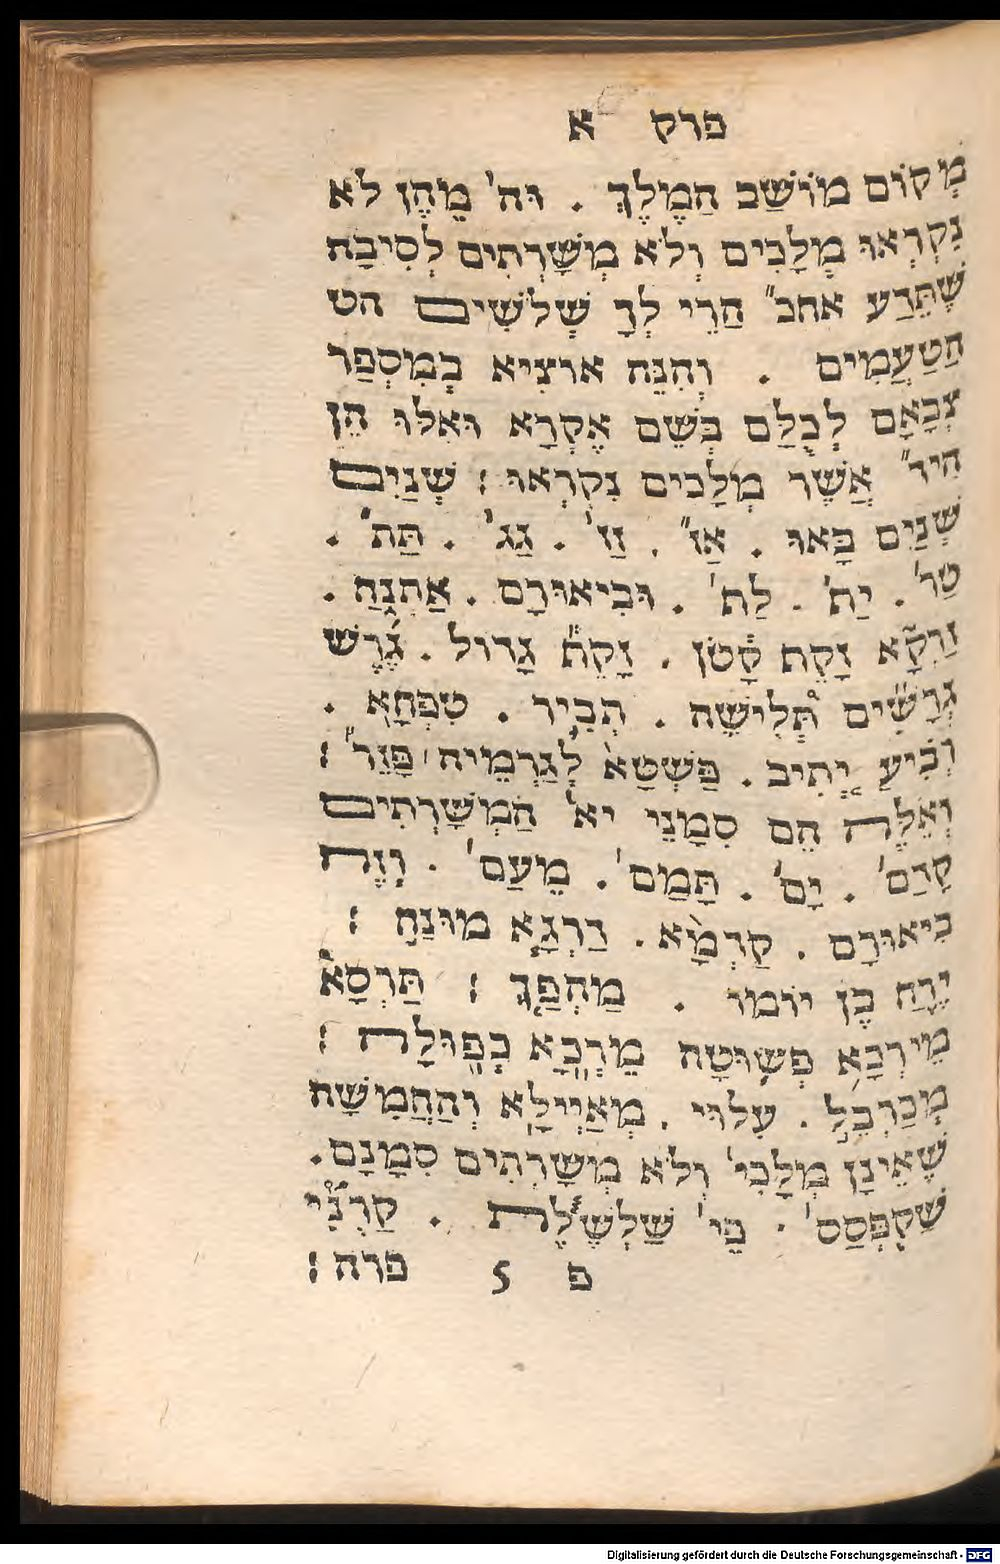 פרק א
מְקוֹם מוֹשַׁב הַמֶלֶךְ . וּה' מֵהֶן לֹא
נִקְרְאוּ מְלָכִים וְלֹא מְשָׁרְתִים לְסִיבָה
שֶׁתֵּדַע אחכ" הַרֵי לְךָ שְׁלשִׁים הט
הַטַעֲמִים . וְהִנֵּה אוֹצִיא בְמִסְפַר
צְבָאָם לְכֻלָּם בְּשֵׁם אֶקְרָא וְאִלּוּ הֵן
היד" אֲשֶׁר מְלָכִים נִקְרְאוּ : שְׁנַיִם
שְׁנַיִם בָּאוּ . אָז" . זַז' . גַג' . תַּת' .
טַר' . יַת' . לַת' . וּבֵיאוּרָם . אֶתְנָח .
זַרְקָא זָקֵף קָטֹן . זָקֵף גָדוֹל . גֶרֶשׁ
גֵרְשַׁיִם תְּלִישָׁה . תְּבִיר . טִפְחָא .
רְבִיעַ יְתִיב . פַּשְׁטָא לְגַרְמֵיה פָּזֵר" :
וְאֵלֶּה הֵם סִמָנֵי יא' הַמְשָׁרְתִים
קָדַם' . יָם' . תָּמַם' . מָעַם' . וְזֶה
בֵיאוּרָם . קַדְמָא . דַרְגָא מוּנַח :
יָרֵחַ בֶּן יוֹמוֹ . מַהְפָּךְ : תַּרְסָא
מֵירְכָא פְשׁוּטָה מֵרְכָא כְפוּלָה :
מְכַרְבֵּל . עִלּוּי . מְאַיְילָא וְהַחֲמִשָׁה
שֶׁאֵינָן מְלָכִי' וְלֹא מְשָׁרְתִים סִמָנָם .
שׁקפסס' . בָי' שַׁלְשֶׁלֶת . קַרְנֵי
פ 5 פרה :
Digitalisierung gefördert durch die Deutsche Forschungsgemeinschaft - DFG